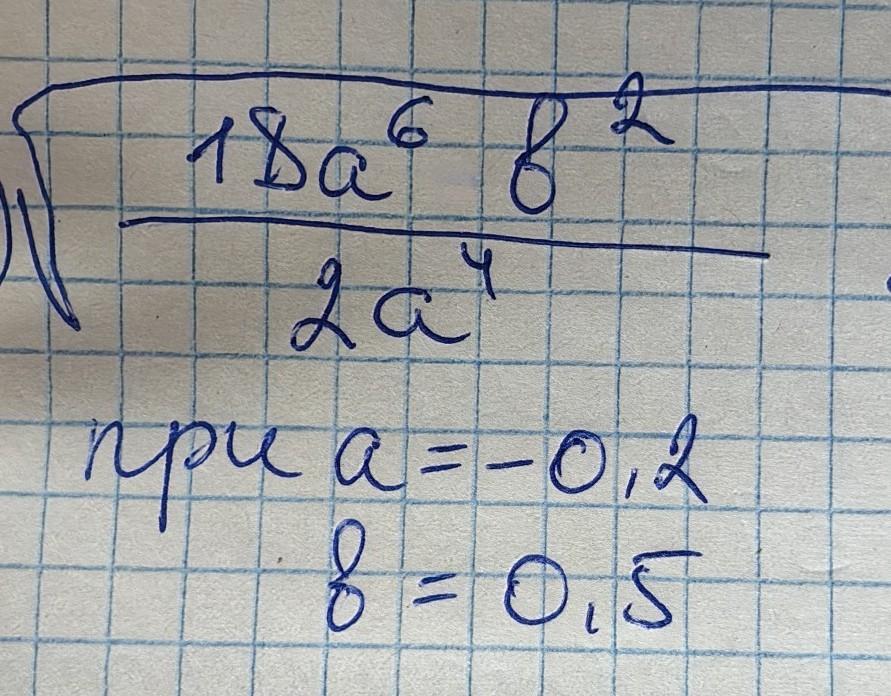 √(18a⁶ b²
2a⁴
при a = -0,2
b = 0,5